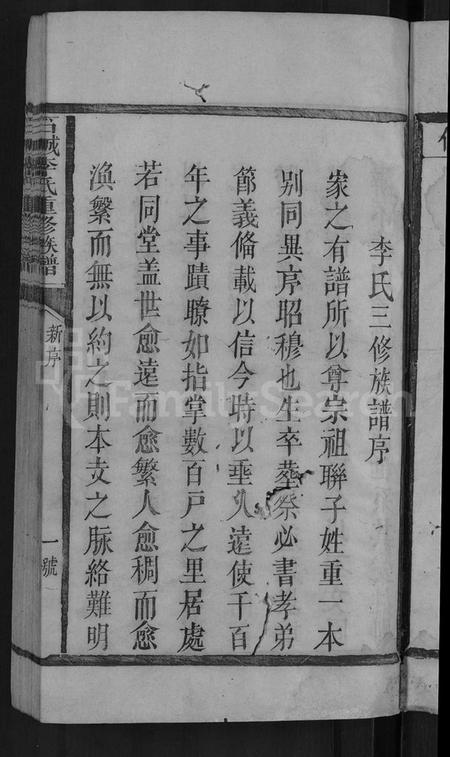 李氏三修族譜序
家之有譜所以尊宗祖聯子姓重一本
別同異序昭穆也生卒塟祭必書孝弟
節義俻載以信今時以埀久遠使千百
年之事蹟瞭如指掌數百戸之里居處
若同堂盖世愈遠而愈繁人愈稠而愈
渙繫而無以約之則本支之脉絡難明
城李氏重修族譜
新序
一號
FamilySearch